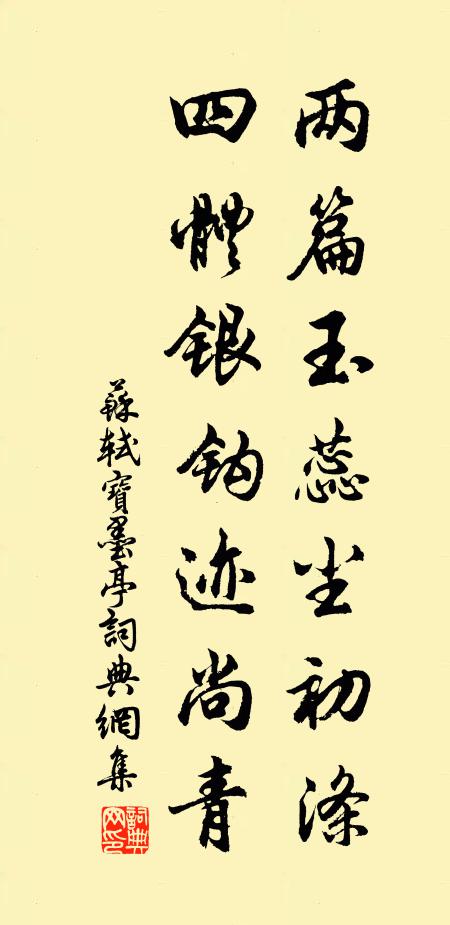 两篇玉蕊尘初涤
四體银钩迹尚青
蘇軾寶墨亭詞典網集
詞典网印